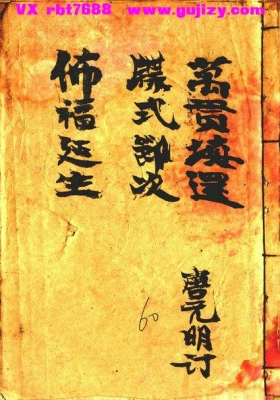 VX rbt7688 www.gujizy.com
萬貫填還
牒式節次
佈福延生
唐元明订
60